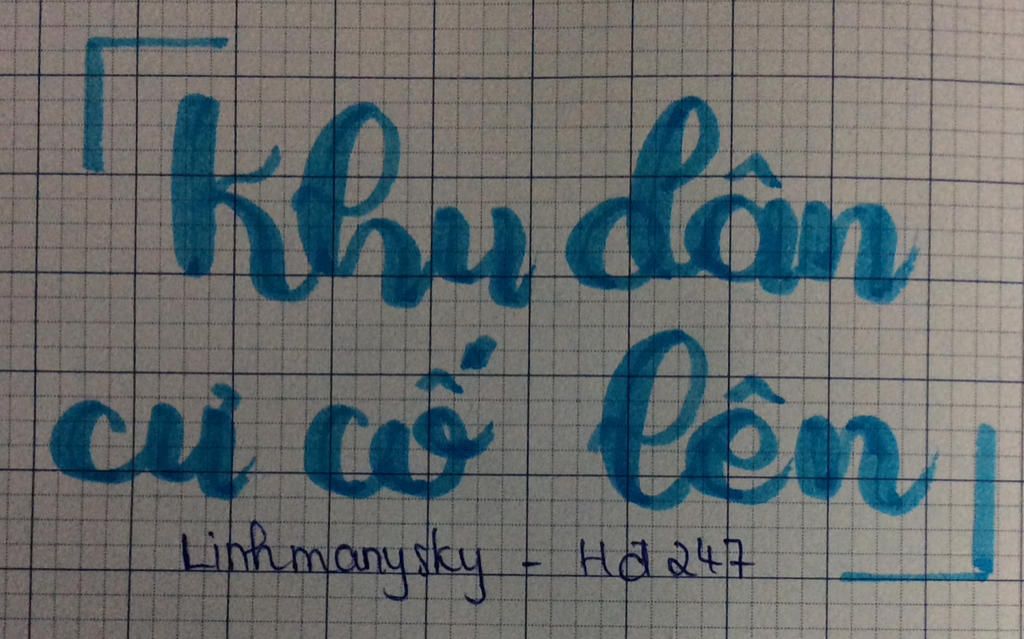 Khu dân
cư cố lên
Linhmanysky - Hđ247